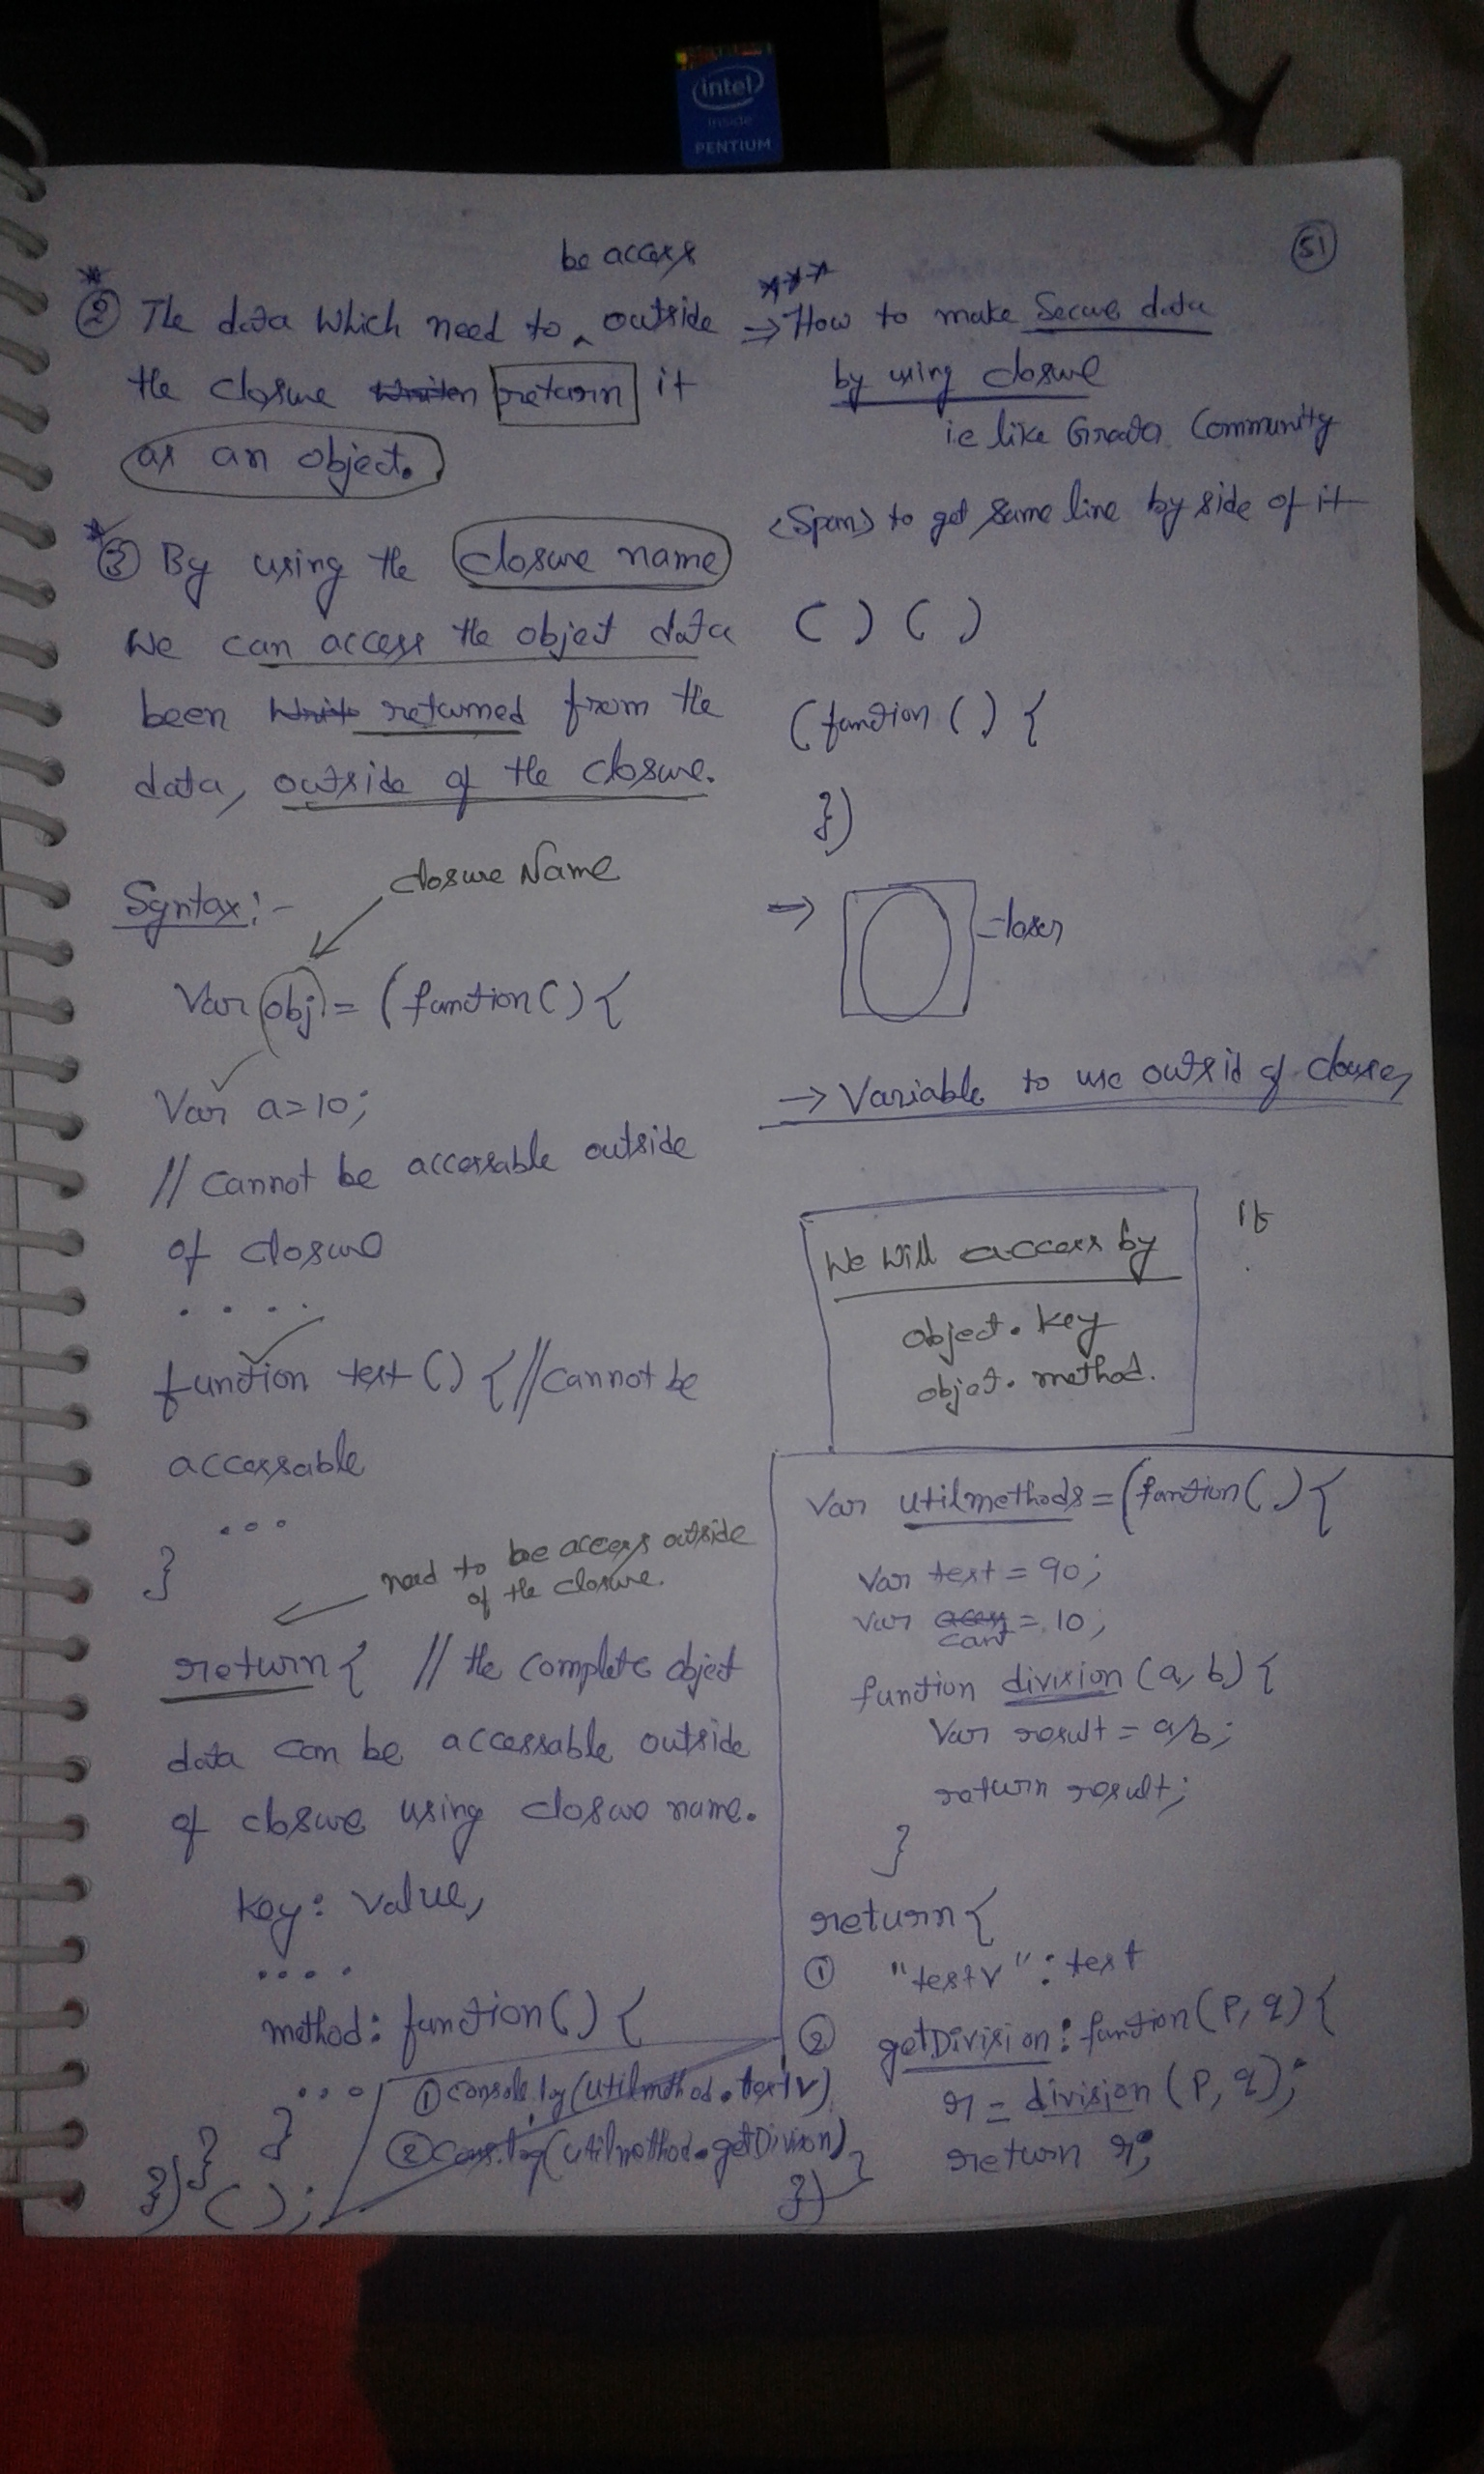 intel
inside
PENTIUM
51
be access
② The data which need to ‸ outside
the closure return it
as an object.
③ By using the closure name
We can access the object data
been returned from the
data, outside of the closure.
Syntax:-
closure Name
Var obj = (function() {
Var a=10;
// cannot be accessable outside
of closure
. . . .
function test () { // cannot be
accessable
...
}
need to be access outside
of the closure.
return { // the complete object
data can be accessable outside
of closure using closure name.
key: value,
....
method: function() {
...
}
}
})();
① console.log(utilmethod.testv)
② cons.log(utilmethod.getDivision)
*** 
⇒ How to make Secure data
by using closure
ie like Community
<Span> to get same line by side of it
( ) ( )
(function () {
})
⇒
→ Variable to use outsid of closure,
We will access by
object. key
object. method.
Var utilmethods = (function() {
Var test = 90;
Var cant = 10;
function division (a, b) {
Var result = a/b;
return result;
}
return {
① "testv" : test
② getDivision : function (p, q) {
r = division (p, q);
return r;
}
})